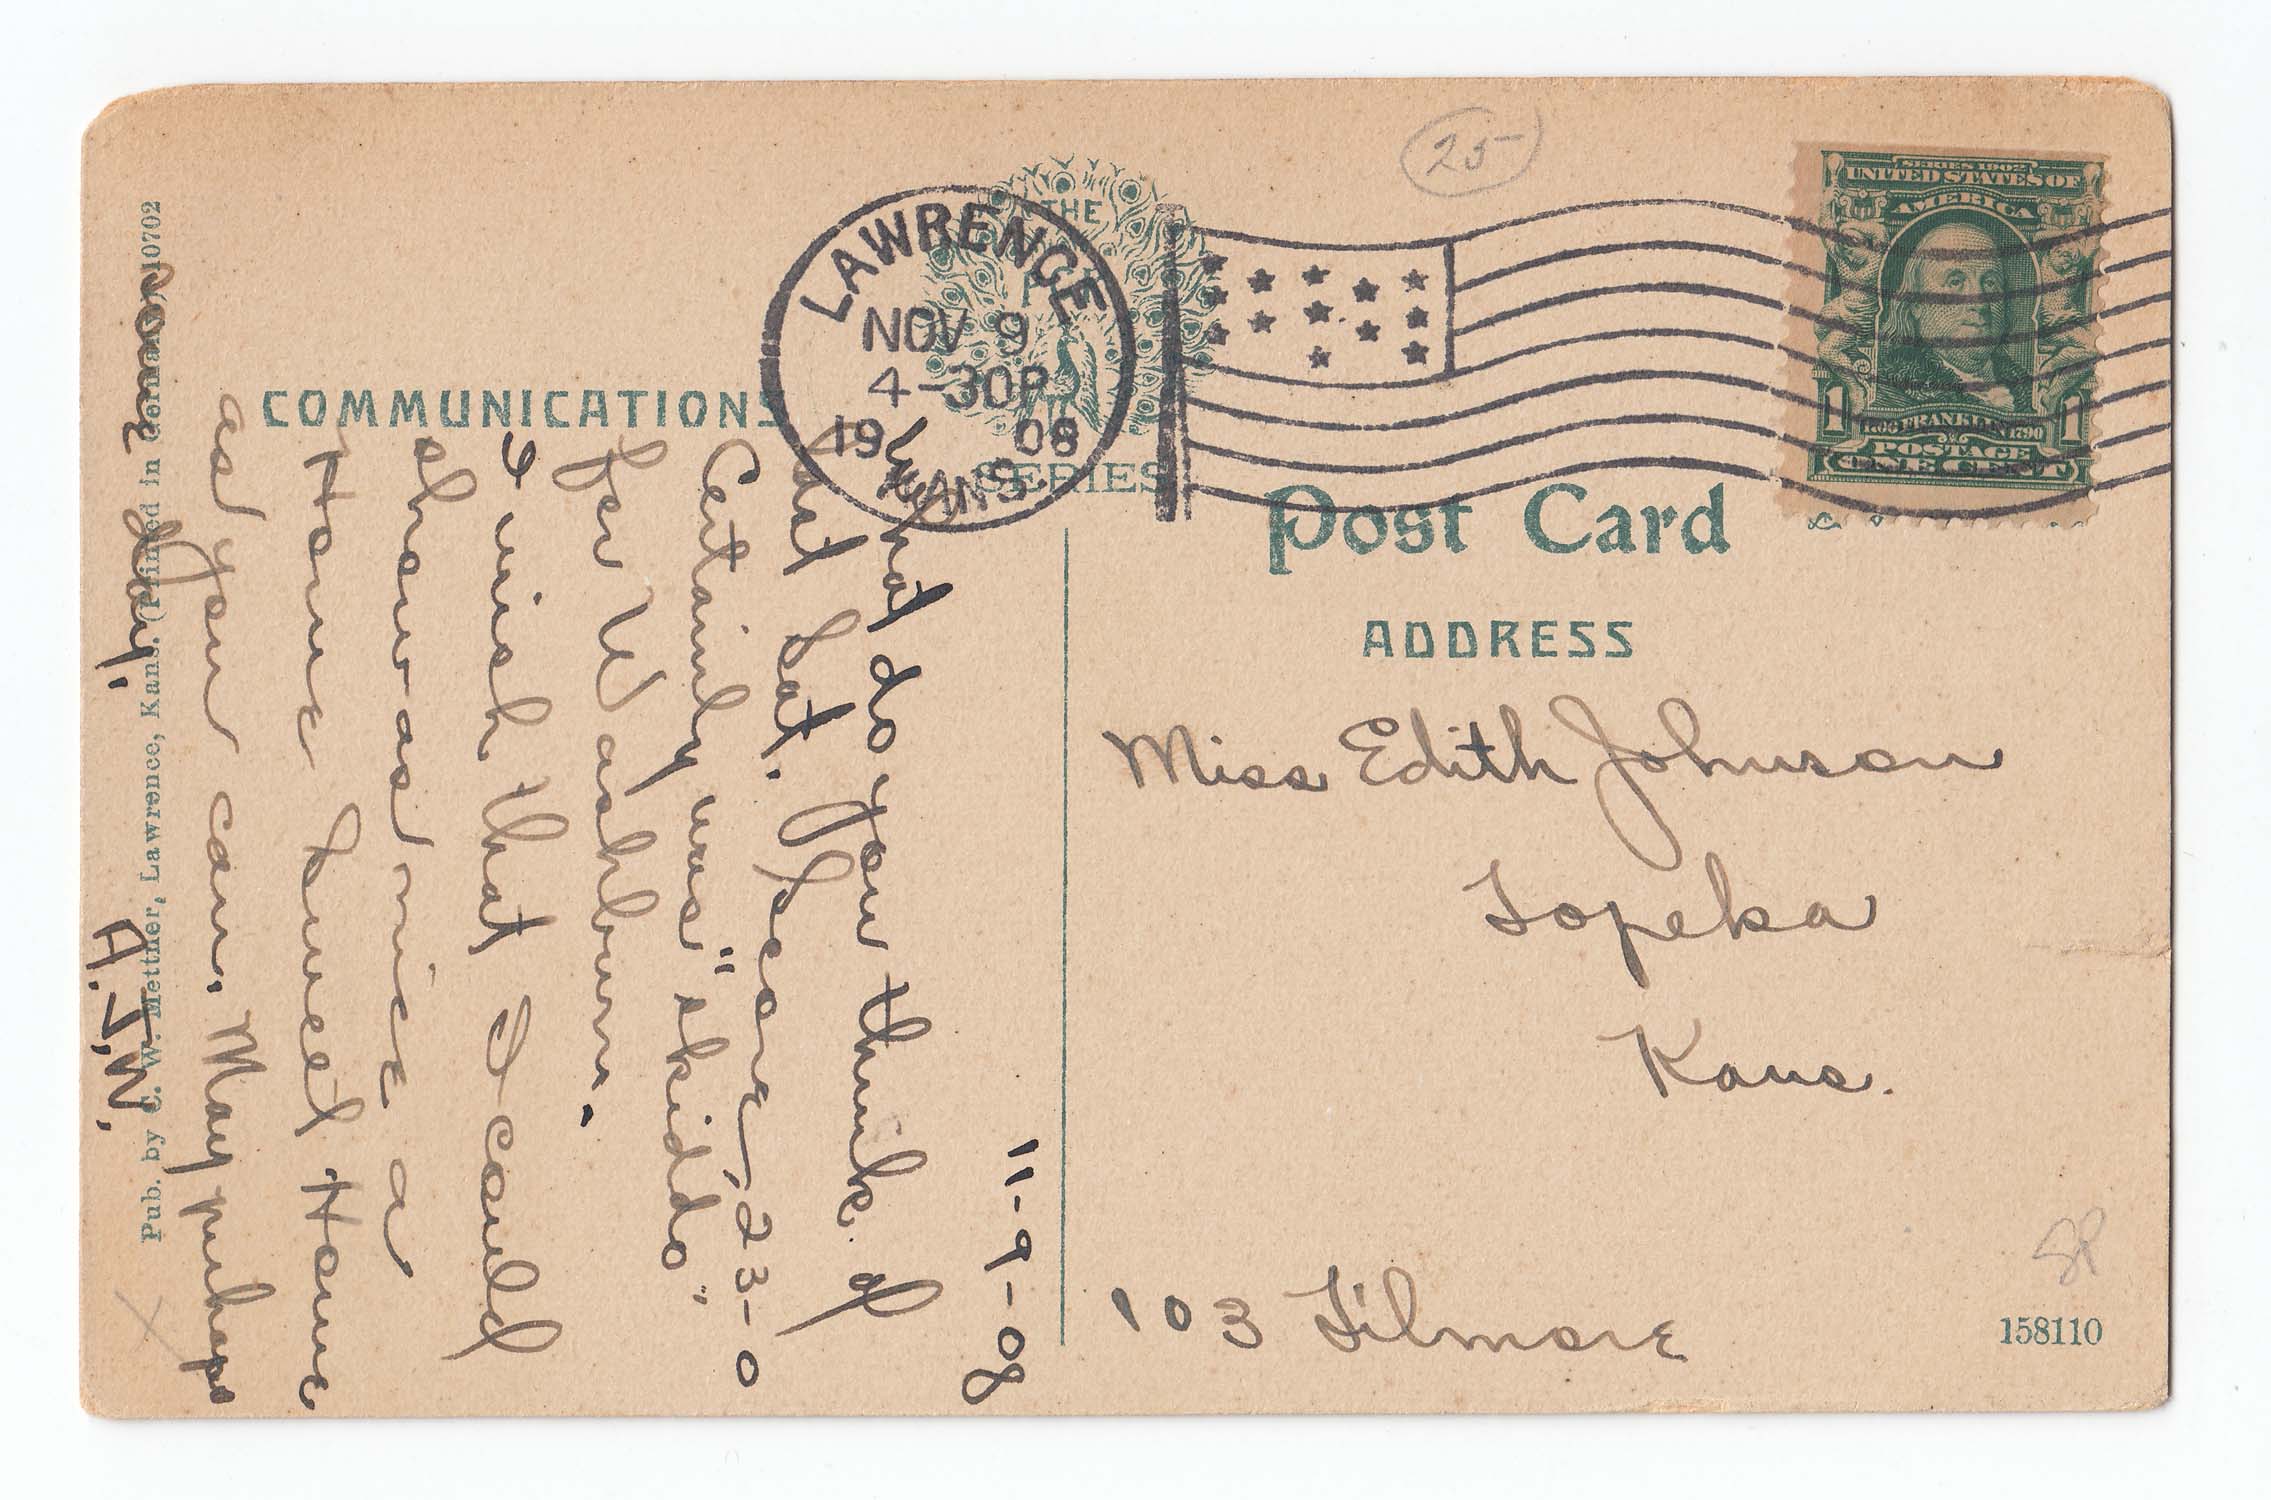 COMMUNICATIONS
THE
P C K
SERIES
LAWRENCE
NOV 9
4-30P
1908
KANS.
25
SERIES 1902
UNITED STATES OF
AMERICA
1706 FRANKLIN 1790
1 POSTAGE 1
ONE CENT
Post Card
ADDRESS
Miss Edith Johnson
Topeka
Kans.
103 Filmore
158110
11-9-08
What do you think of
last Sat. Score, 23-0
Certainly was "skiddo"
for Washburn.
I wish that I could
show as nice a
Home Sweet Home
as you can. May perhaps
some day. A.J.W.
Pub. by C. W. Mettner, Lawrence, Kans. (Printed in Germany) 10702